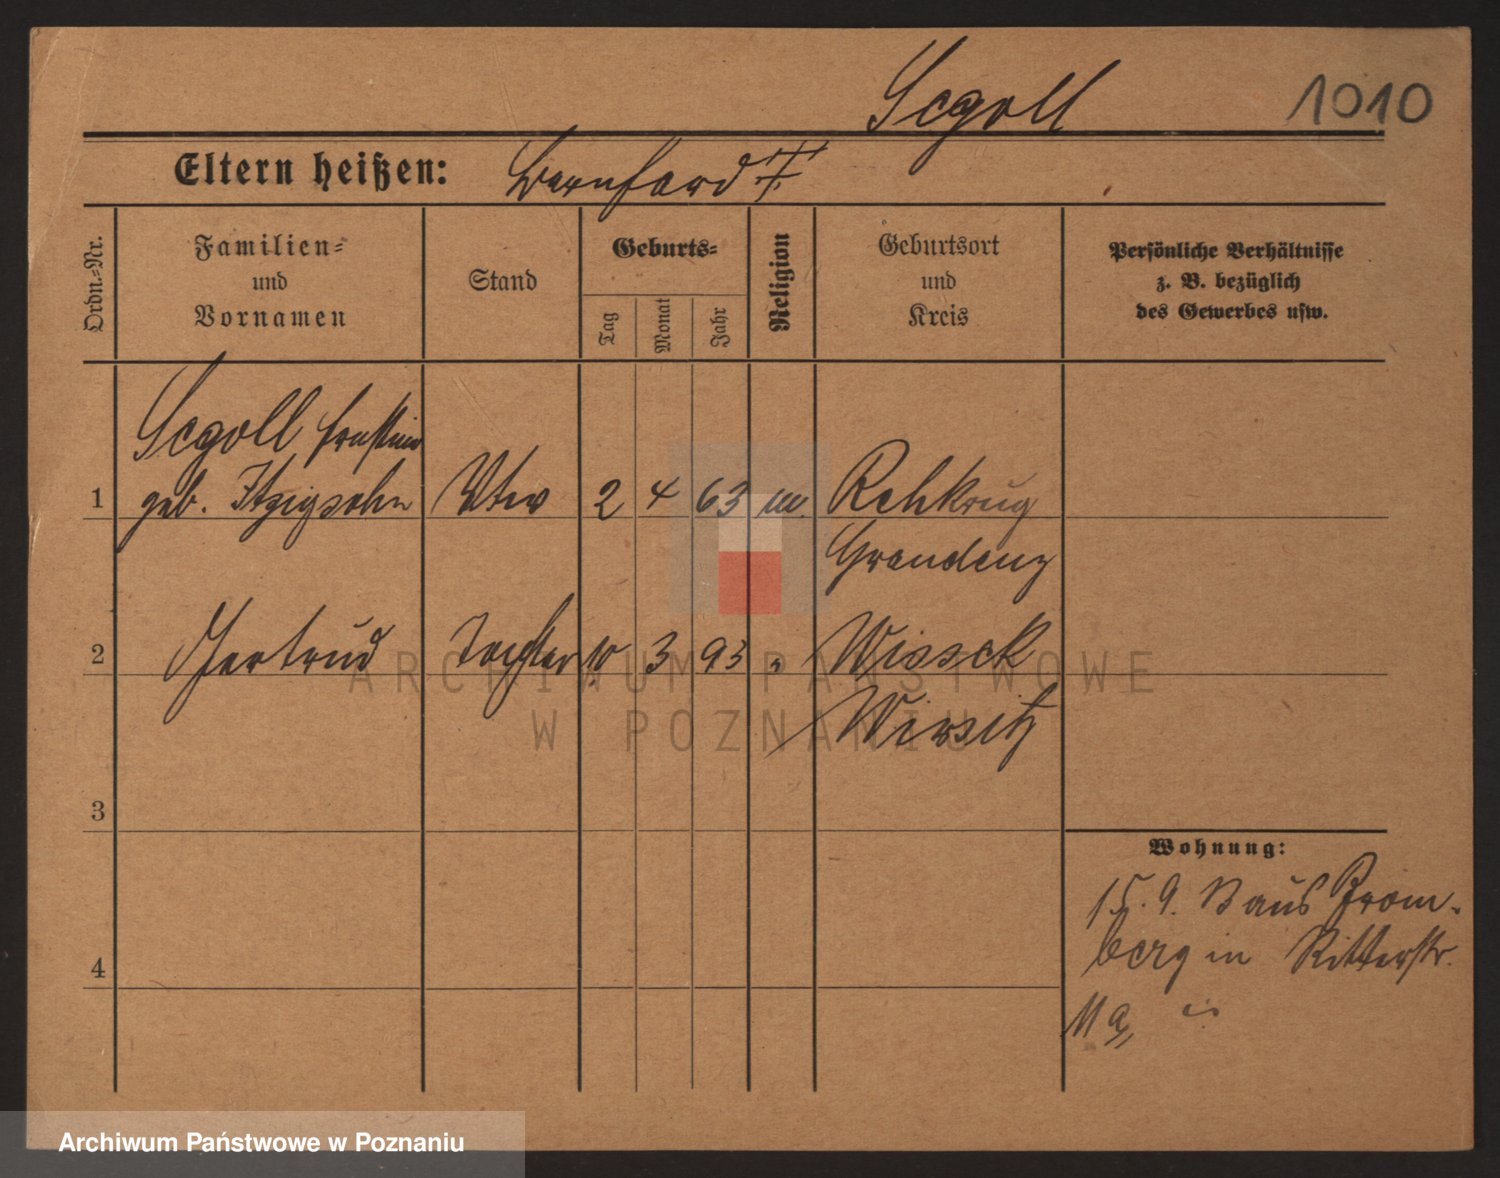 Segall
1010
Eltern heißen: Bernhard
Ordn.-Nr.
Familien-
und
Vornamen
Stand
Geburts-
Tag
Monat
Jahr
Religion
Geburtsort
und
Kreis
Persönliche Verhältnisse
z. B. bezüglich
des Gewerbes usw.
Segall Ernstine
1 geb. Itzigsohn Wtw 2 4 63 m. Rehkrug
Graudenz
2 Gertrud Tochter 10 3 93 " Wissek
Wirsitz
3
4
Wohnung:
15. 9. 13 aus Brom-
berg in Ritterstr.
11 a,
ARCHIWUM PAŃSTWOWE
W POZNANIU
Archiwum Państwowe w Poznaniu